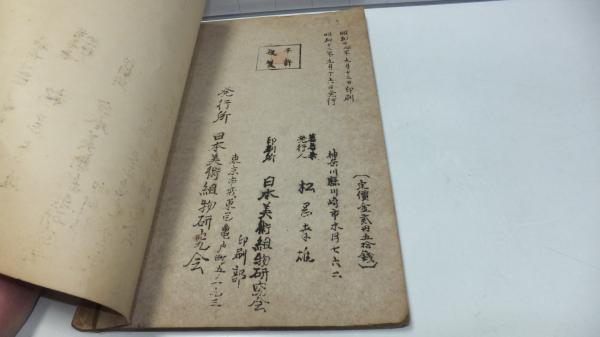 昭和十二年九月十三日印刷
昭和十二年九月十六日発行
不許
複製
〔定價金貳円五拾銭〕
神奈川縣川崎市木月七六二
発行人 松
印刷所 日本美術組物研究会
印刷部
東京市城東區亀戸町五ノ一九三
発行所 日本美術組物研究会